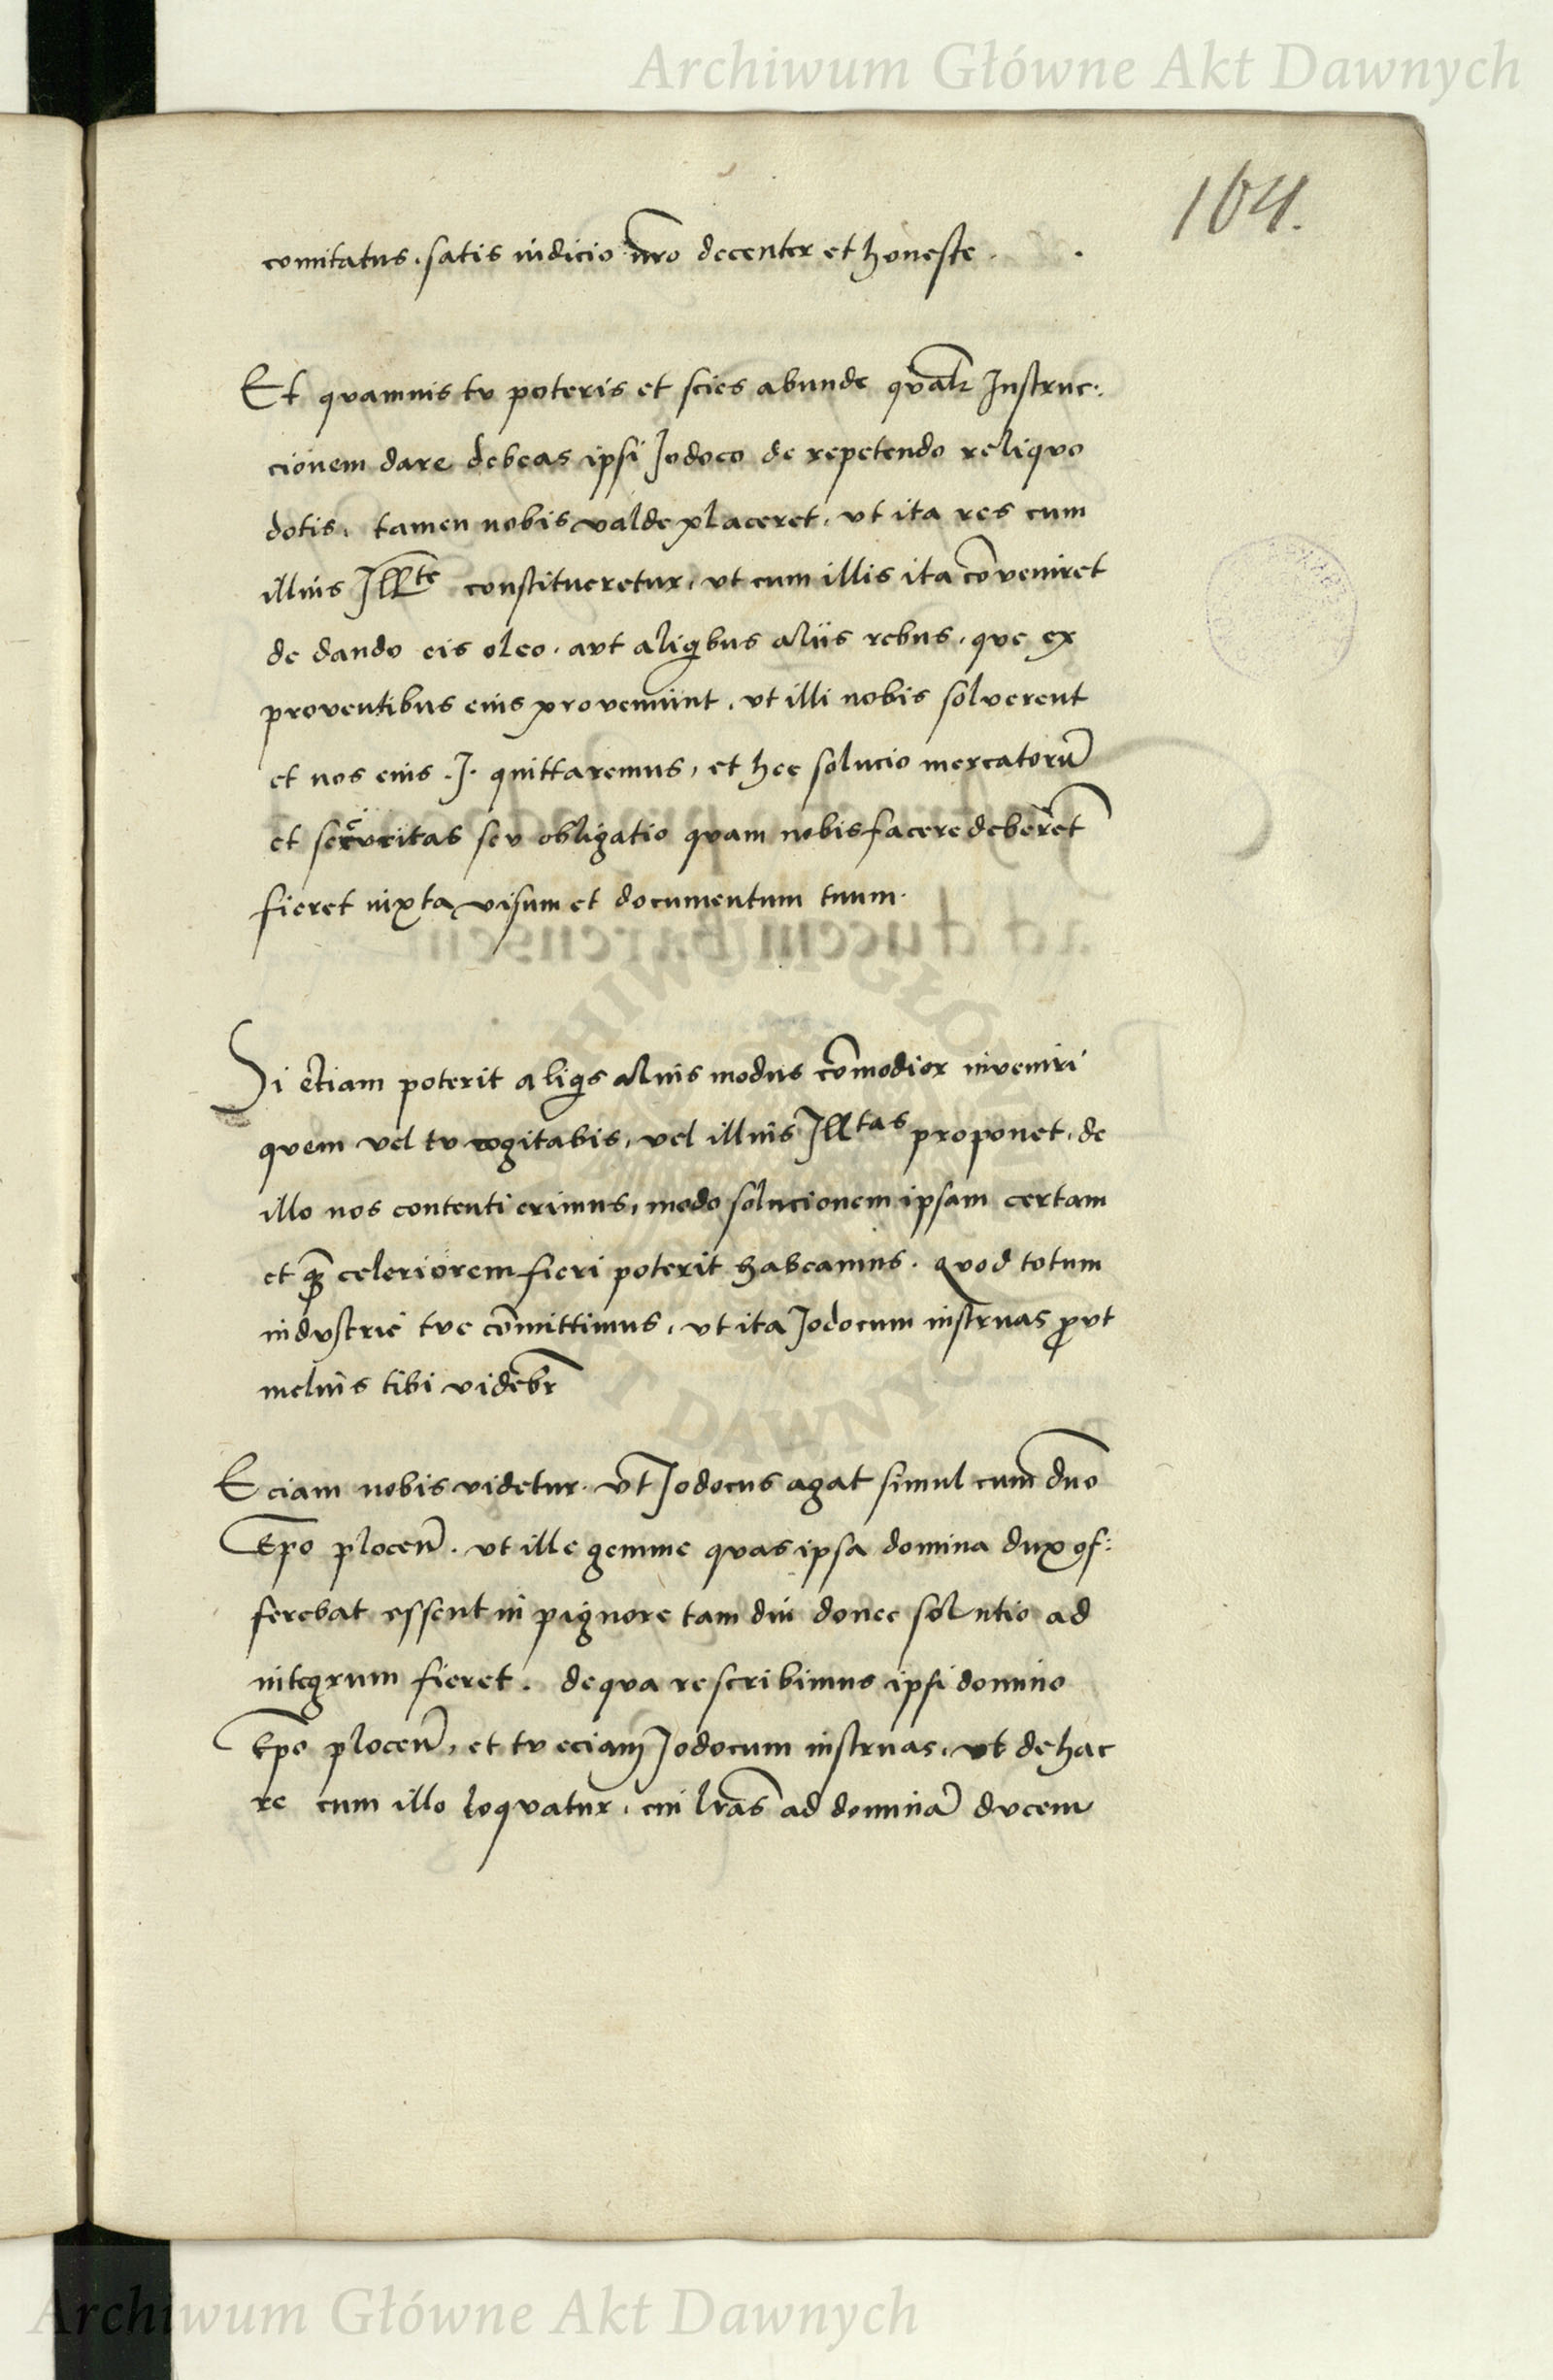 Archiwum Główne Akt Dawnych
104.
comitatus. satis iudicio nr̃o decenter et honeste.
Et quamuis tu poteris et scies abunde qualẽ Instruc:
cionem dare debeas ipsi Jodoco de repetendo reliquo
dotis, tamen nobis valde placeret, vt ita res cum
illius Illte constitueretur, vt cum illis ita cõveniret
de dando eis oleo, aut aliqibus alijs rebus, que ex
proventibus eius proveniunt, vt illi nobis solverent
et nos eius .J. quittaremus, et hec solucio mercatorũ
et securitas seu obligatio quam nobis facere deberẽt
fieret iuxta visum et documentum tuum.
Si etiam poterit aliqs alius modus cõmodior inveniri
quem vel tu cogitabis, vel illius Illtas proponet, de
illo nos contenti erimus, modo solucionem ipsam certam
et q̃ celeriorem fieri poterit habeamus. quod totum
industrie tue cõmittimus, vt ita Jodocum instruas put
melius tibi videbr̃
Eciam nobis videtur. vt Jodocus agat simul cum dño
Epo plocen̄. vt ille gemme quas ipsa domina dux of:
ferebat essent in pignore tam diu donec solutio ad
integrum fieret. de qua re scribimus ipsi domino
Epo plocen̄, et tu eciam Jodocum instruas, vt de hac
re cum illo loquatur, cui lr̃as ad dominã ducem
Archiwum Główne Akt Dawnych